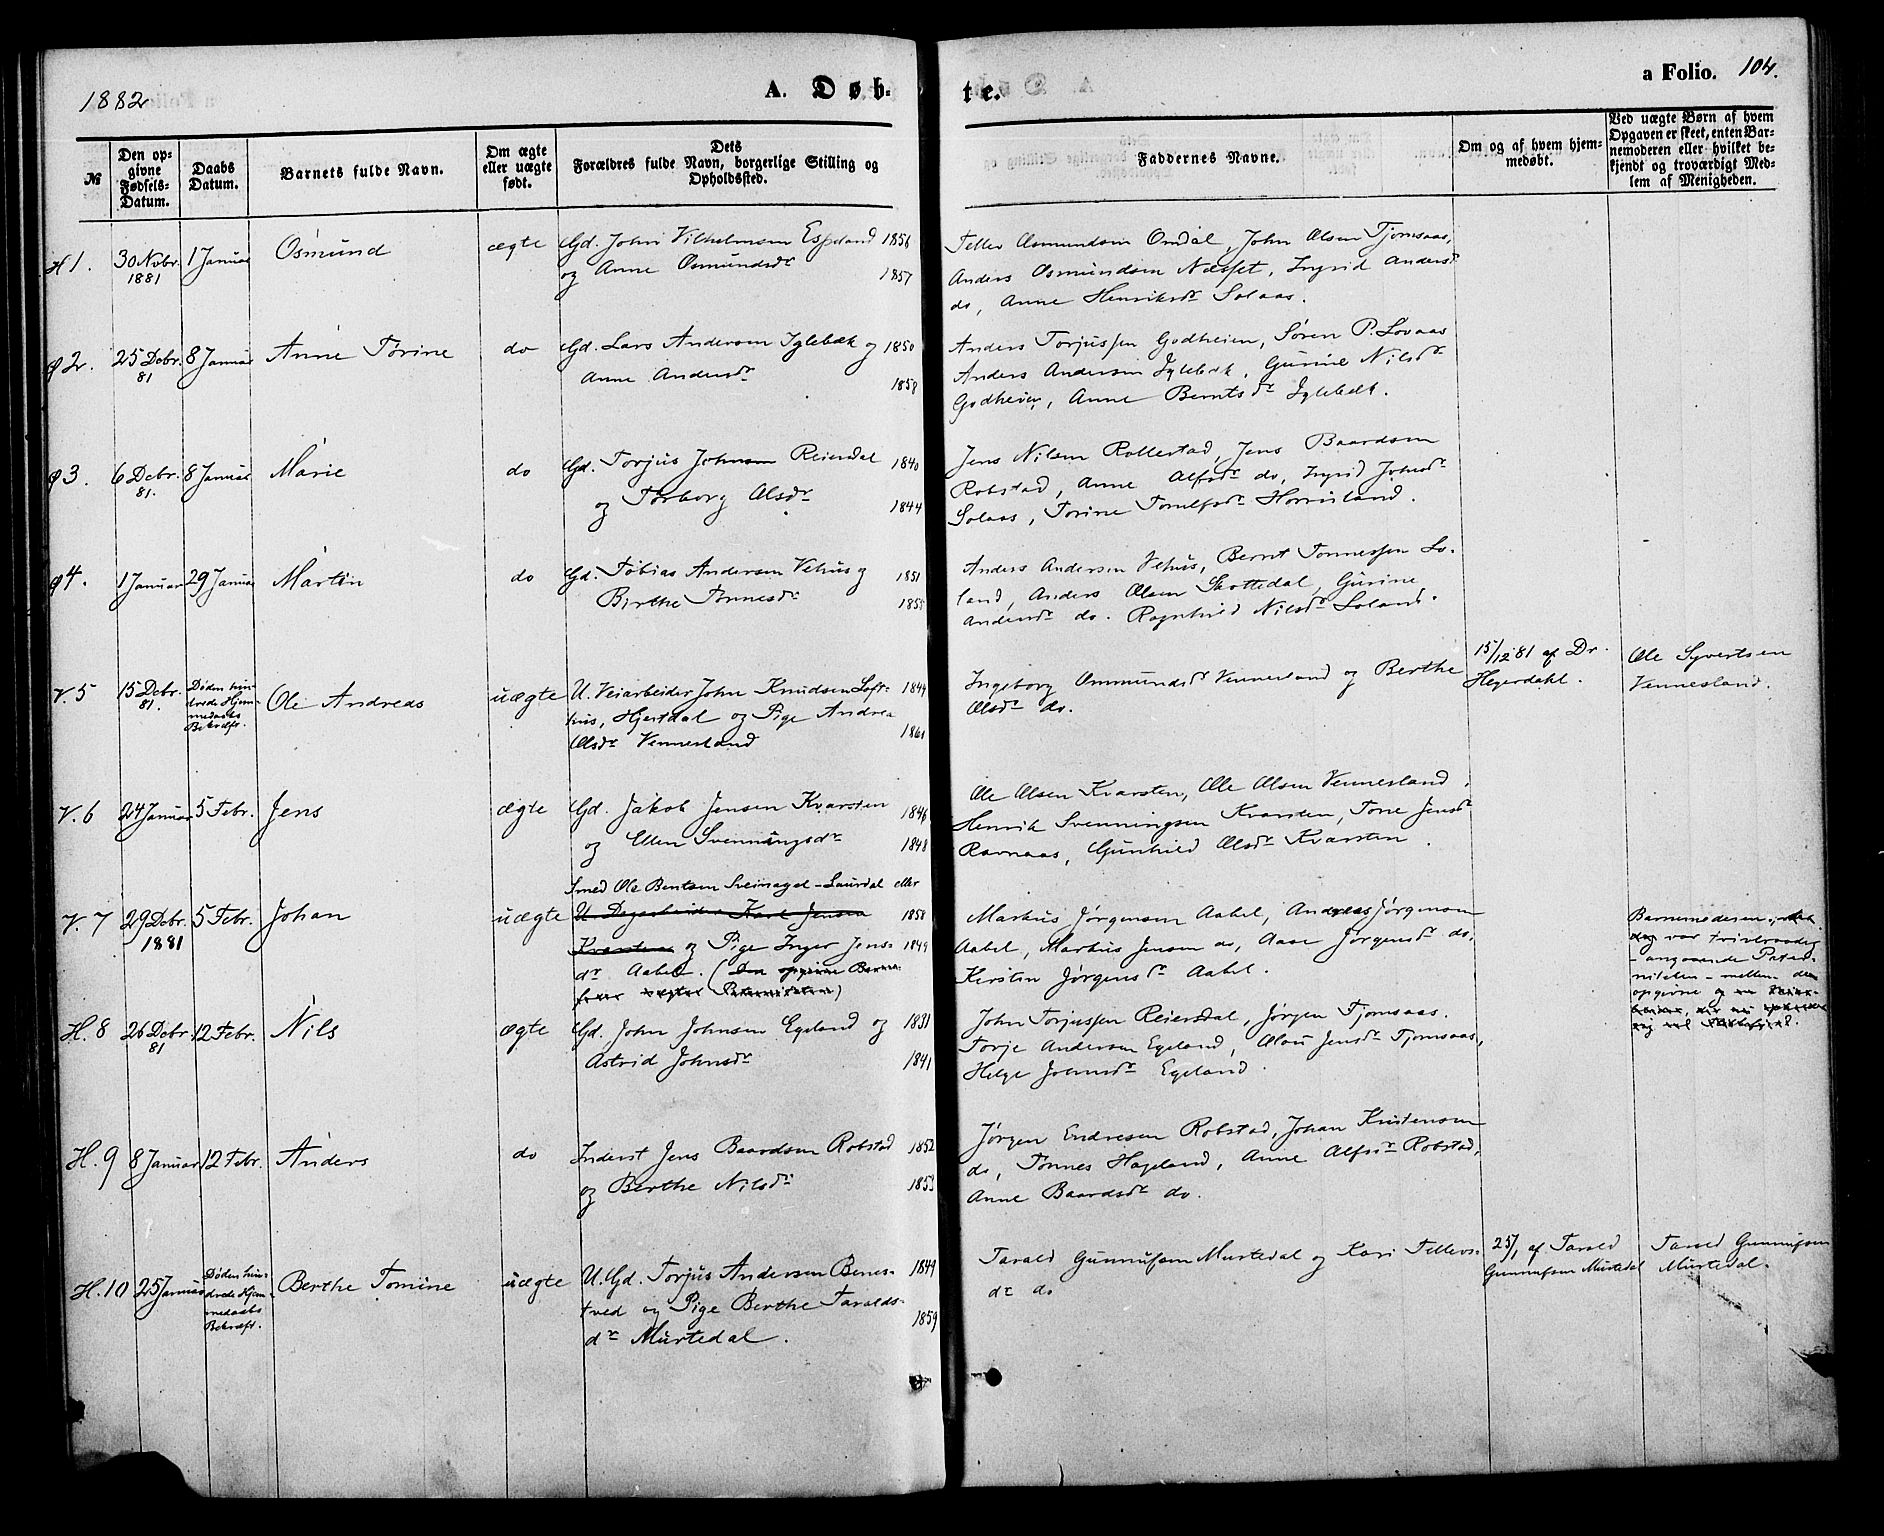 1882
A. Døb-
te.
a Folio. 104.
№
Den op-
givne
Fødsels-
Datum.
Daabs
Datum.
Barnets fulde Navn.
Om ægte
eller uægte
født.
Dets
Forældres fulde Navn, borgerlige Stilling og
Opholdssted.
Faddernes Navne.
Om og af hvem hjem-
medøbt.
Ved uægte Børn af hvem
Opgaven er skeet, enten Bar-
nemoderen eller hvilket be-
kjendt og troværdigt Med-
lem af Menigheden.
H 1.
30 Novbr.
1881
1 Januar
Osmund
ægte
Gd. John Vilhelmsen Espeland 1856
og Anne Osmundsdr 1857
Tellef Osmundsen Omdal, John Olsen Tjomsaas,
Anders Osmundsen Næsset, Ingrid Andersdr
do, Anne Henriksdr Solaas.
Ø 2.
25 Decbr.
81
8 Januar
Anne Torine
do
Gd. Lars Andersen Iglebæk og 1850
Anne Andersdr 1858
Anders Torjussen Godheien, Søren P. Lovaas
Anders Andersen Iglebæk, Gurine Nilsdr
Godheien, Anne Berntsdr Iglebæk.
Ø 3.
6 Decbr.
81.
8 Januar
Marie
do
Gd. Torjus Johnsen Reiersdal 1840
og Torborg Olsdr 1844
Jens Nilsen Rollestad, Jens Baardsen
Robstad, Anne Alfsdr do, Ingrid Johnsdr
Solaas, Torine Tomlfsdr Honnsland.
Ø 4.
1 Januar
29 Januar
Martin
do
Gd. Tobias Andersen Vehus og 1851
Birthe Tønnesdr 1855
Anders Andersen Vehus, Bernt Tønnessen Lo-
land, Anders Olsen Skottedal, Gurine
Andersdr do. Ragnhild Nilsdr Loland.
V. 5
15 Decbr.
81.
Døden hin-
drede Hjem-
medaabs
Bekræft.
Ole Andreas
uægte
U. Veiarbeider John Knudsen Loft- 1844
hus, Hjertdal og Pige Andrea
Olsdr Vennesland 1861
Ingeborg Ommundsdr Vennesland og Berthe
Olsdr do.
15/12 81 af Dr.
Heyerdahl.
Ole Syvertsen
Vennesland.
V. 6
24 Januar
5 Febr.
Jens
ægte
Gd. Jakob Jensen Kvarsten 1846
og Ellen Svenningsdr 1848
Ole Olsen Kvarsten, Ole Olsen Vennesland,
Henrik Svenningsen Kvarsten, Tone Jensdr
Ravnaas, Gunhild Olsdr Kvarsten.
V. 7
29 Decbr.
1881
5 Febr.
Johan
uægte
Smed Ole Bentsen Sveinaget - Laurdal eller
U. Dagarbeider Karl Jensen 1858
Kvarsten og Pige Inger Jens- 1849
dr Aabel. (Den opgivne Barne-
fader nægter Paterniteten)
Markus Jørgensen Aabel, Andreas Jørgensen
Aabel, Markus Jensen do, Aase Jørgensdr do,
Kersten Jørgensdr Aabel.
Barnemoderen,
var tvivlraadig
- angaaende Pater-
niteten - mellem den
opgivne og en
H. 8
26 Decbr
81
12 Febr.
Nils
ægte
Gd. John Johnsen Egeland og 1831
Astrid Johnsdr 1841
John Torjussen Reiersdal, Jørgen Tjomsaas.
Torje Andersen Egeland, Alou Jensdr Tjomsaas,
Helge Johnsdr Egeland.
H. 9
8 Januar
12 Febr.
Anders
do
Inderst Jens Baardsen Robstad 1852
og Berthe Nilsdr 1853
Jørgen Endresen Robstad, Johan Kristensen
do, Tønnes Hageland, Anne Alfsdr Robstad,
Anne Baardsdr do.
H. 10
25 Januar
Døden hin-
drede Hjem-
medaabs
Bekræft.
Berthe Tomine
uægte
U. Gd. Torjus Andersen Benes- 1849
tved og Pige Berthe Taralds- 1859
dr Murtedal.
Tarald Gunnufsen Murtedal og Kari Tellevs-
dr do
25/1 af Tarald
Gunnufsen Murtedal
Tarald Gunnufsen
Murtedal.